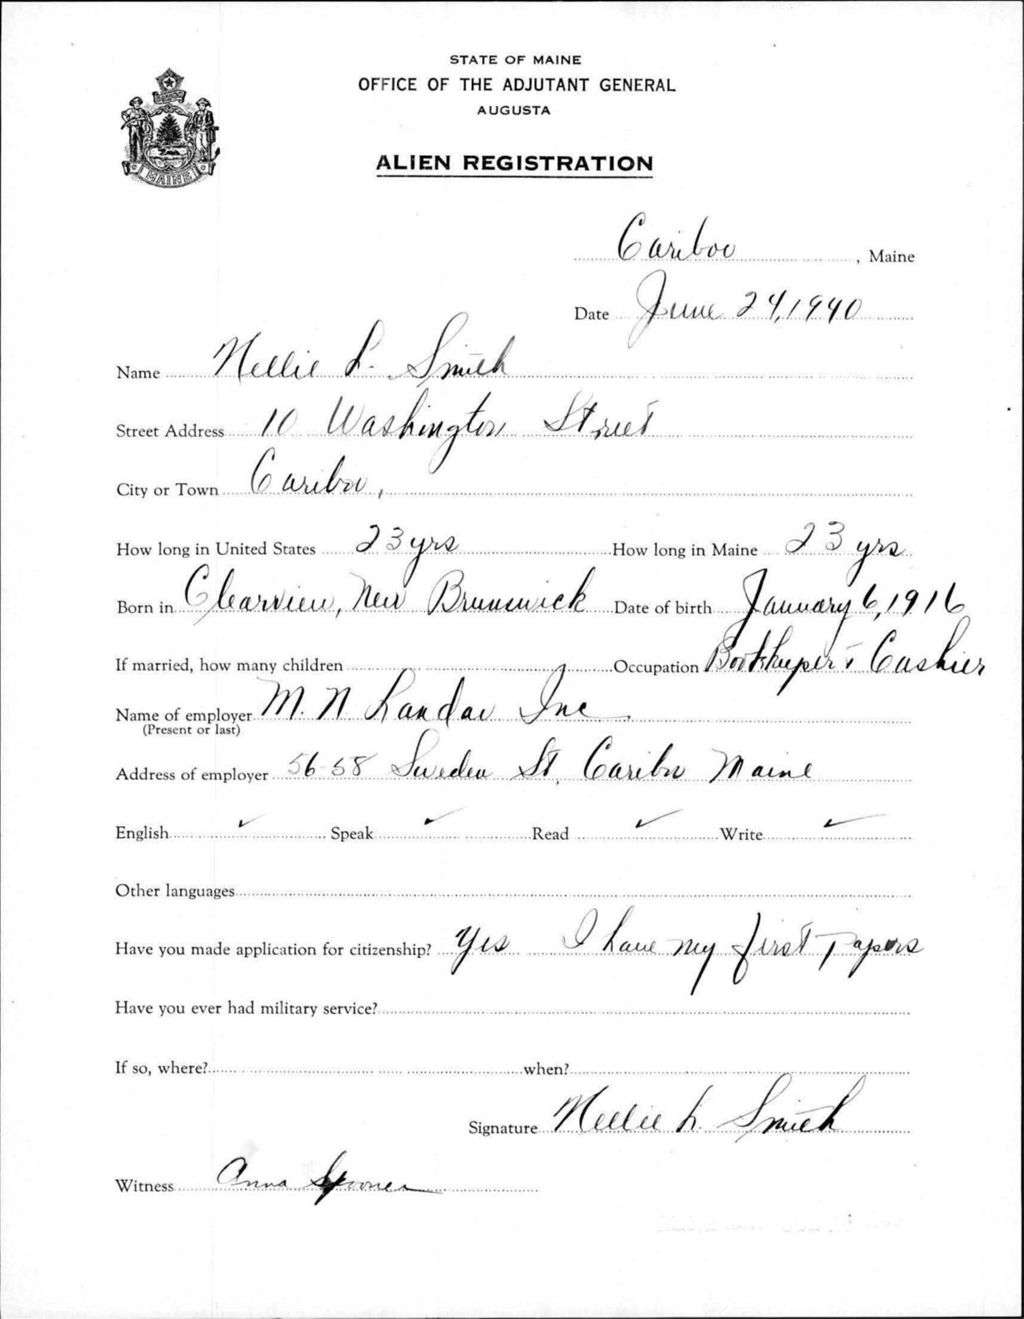 STATE OF MAINE
OFFICE OF THE ADJUTANT GENERAL
AUGUSTA
ALIEN REGISTRATION
MAINE
Caribou, Maine
Date June 24, 1940
Name Nellie L. Smith
Street Address 10 Washington Street
City or Town Caribou,
How long in United States 23 yrs How long in Maine 23 yrs
Born in Clearview, New Brunswick Date of birth January 6, 1916
If married, how many children Occupation Bookkeeper & Cashier
Name of employer M. N Landau Inc.
(Present or last)
Address of employer 56-58 Sweden St. Caribou Maine
English ✓ Speak ✓ Read ✓ Write ✓
Other languages
Have you made application for citizenship? Yes I have my first papers
Have you ever had military service?
If so, where? when?
Signature Nellie L. Smith
Witness Anna